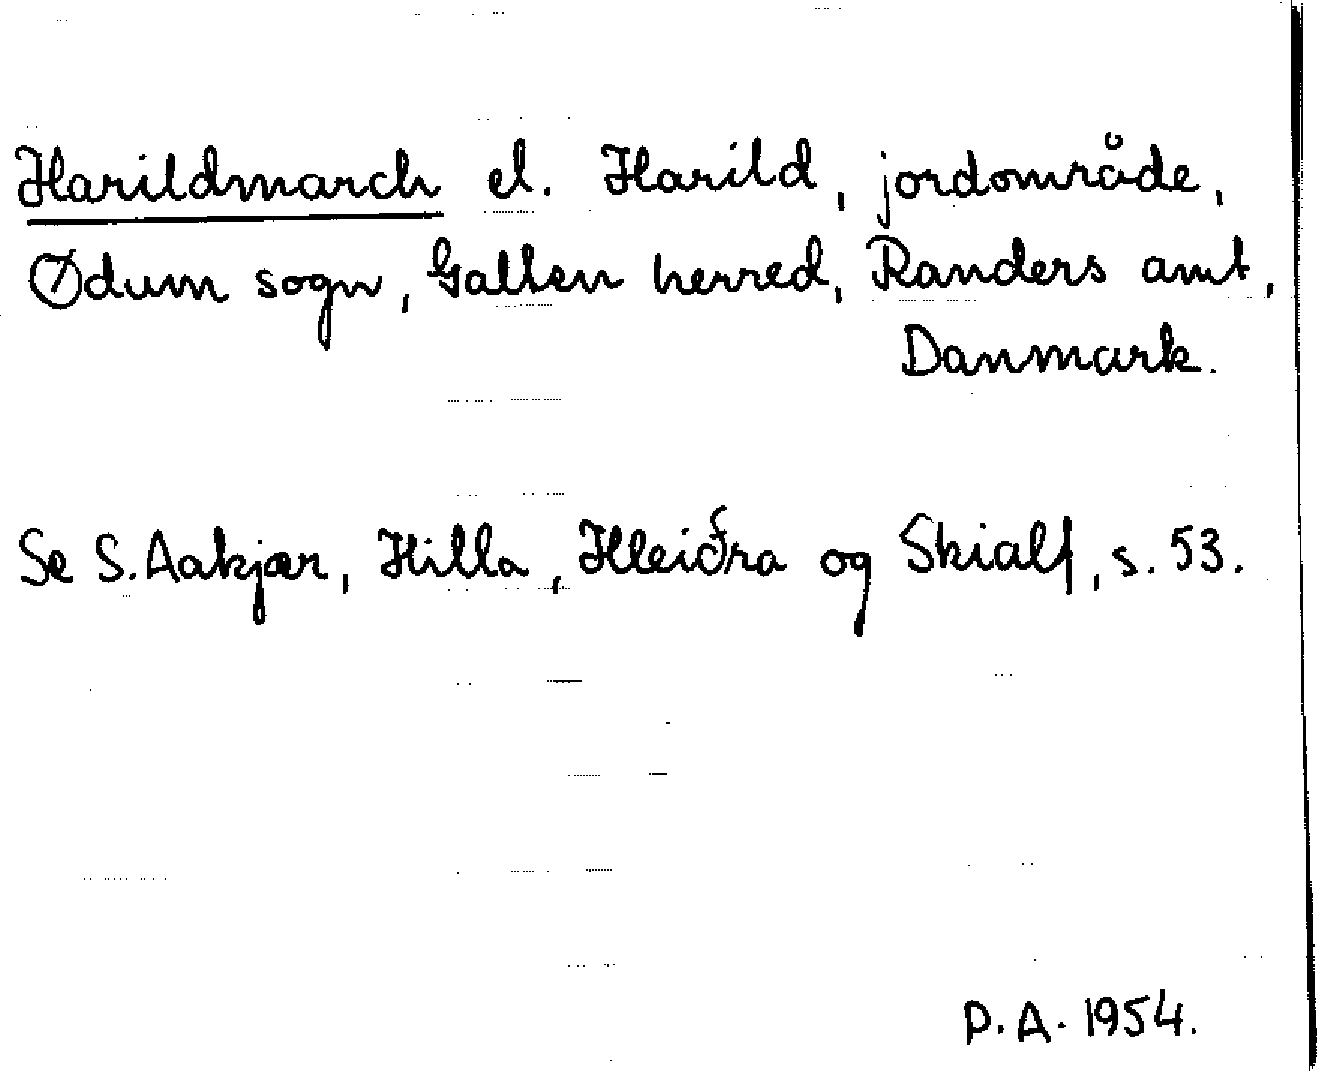 Harildmarch el. Harild, jordområde,
Ødum sogn, Galten herred, Randers amt,
Danmark.
Se S. Aakjær, Hilla, Hleiðra og Skialf, s. 53.
P. A. 1954.